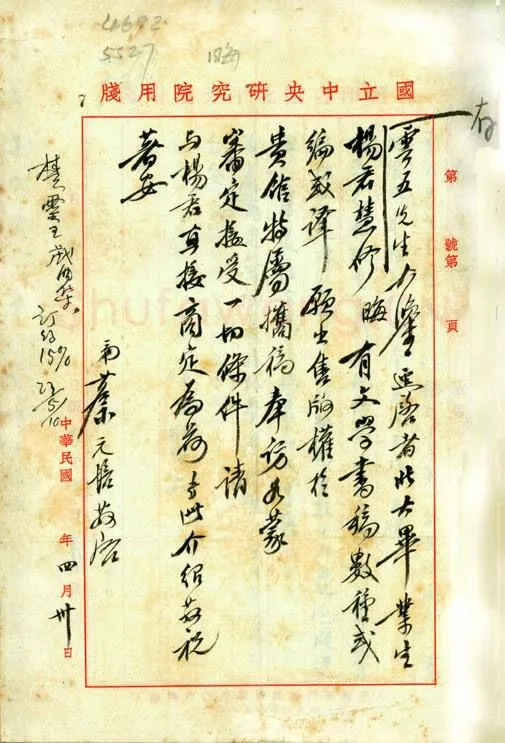 4682
5527
晦
國立中央研究院用牋
存
第 號第 頁
雲五先生大鑒逕啓者北大畢業生
楊君慧修 晦 有文學書稿數種或
編或譯願出售版權於
貴館特屬攜稿奉訪如蒙
審定接受一切條件請
与楊君直接商定爲荷專此介紹並祝
著安
弟蔡元培敬啓
中華民國 年 四 月 卅 日
訂約15%